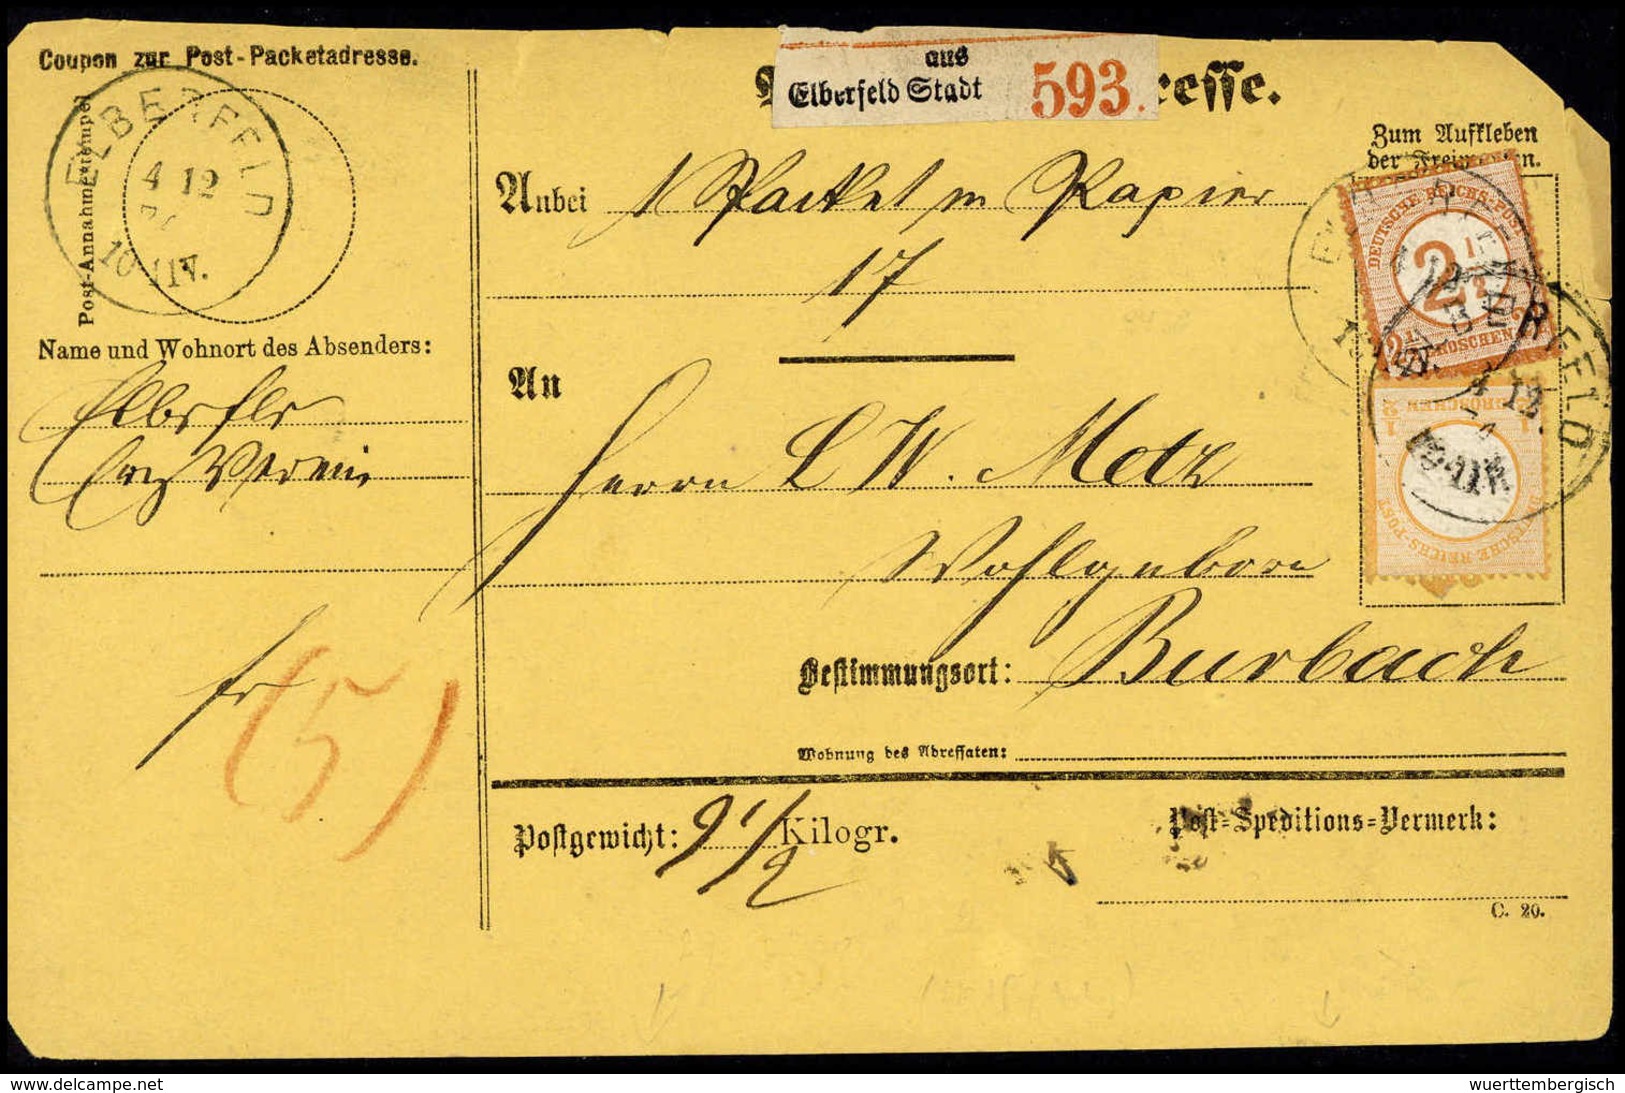 Coupon zur Post-Packetadresse.
Post-Annahmestempel
ELBERFELD
4 12
10-11V.
Name und Wohnort des Absenders:
Elberfld
Verein
fr (5)
aus
Elberfeld Stadt 593.
resse.
Zum Aufkleben
der Freimarken.
Anbei 1 Packet m Papier
17
An
Herrn L W. Metz
Wohlgeborn
Bestimmungsort: Burbach
Wohnung des Adressaten:
Postgewicht: 9 1/2 Kilogr.
Post-Speditions-Vermerk:
C. 20.
DEUTSCHE REICHS-POST
2 1/2
2 1/2 GROSCHEN
1/2 GROSCHEN 1/2
DEUTSCHE REICHS-POST
ELBERFELD
4 12
delcampe.net
wuerttembergisch